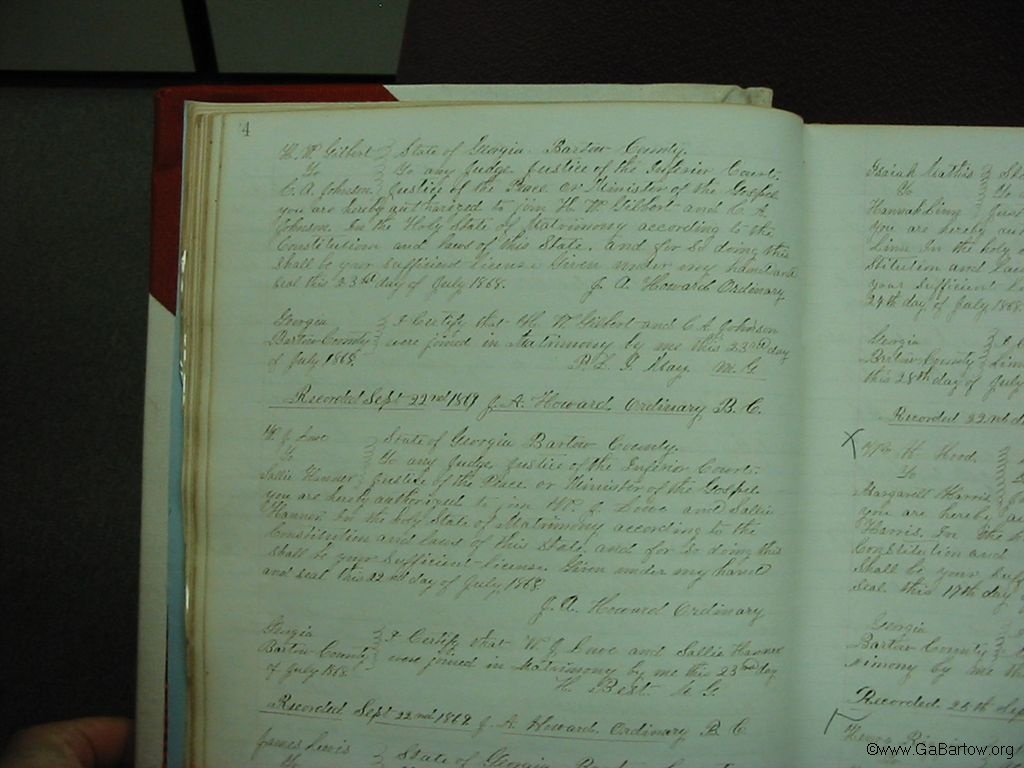 4
H. W. Gilbert State of Georgia Bartow County.
To To any Judge, Justice of the Inferior Court.
C. A. Johnson. Justice of the Peace or Minister of the Gospel
you are hereby authorized to join H. W. Gilbert and C. A.
Johnson. In the Holy State of Matrimony according to the
Constitution and laws of this State. and for so doing this
shall be your sufficient license Given under my hand and
seal this 23rd day of July 1868. J. A. Howard Ordinary
Georgia I Certify that H. W. Gilbert and C. A. Johnson
Bartow County were joined in Matrimony by me this 23rd day
of July 1868. M. G
Recorded Sept 22nd 1869 J. A. Howard Ordinary B. C.
W. J. State of Georgia Bartow County.
To To any Judge, Justice of the Inferior Court.
Sallie Hanner Justice of the Peace or Minister of the Gospel
you are hereby authorized to join W. J. and Sallie
Hanner In the holy State of Matrimony according to the
Constitution and laws of this State, and for so doing this
shall be your sufficient license. Given under my hand
and seal this 22nd day of July 1868
J. A. Howard Ordinary
Georgia I Certify that W. J. and Sallie Hanner
Bartow County were joined in Matrimony by me this 23rd day
of July 1868. Best
Recorded Sept 22nd 1869 J. A. Howard Ordinary B. C
James Lewis State of Georgia Bartow County
Isaiah Mathis
To
Hannah
you are hereby
In the holy
stitution and
your sufficient
day of July 1868
Georgia
Bartow County
this 28th day of July
Recorded 22nd
X Wm H. Hood
To
Margarett Harris
you are hereby
Harris. In the
Constitution and
shall be your
seal this 17th day
Georgia
Bartow County
by me
Recorded.
©www.GaBartow.org